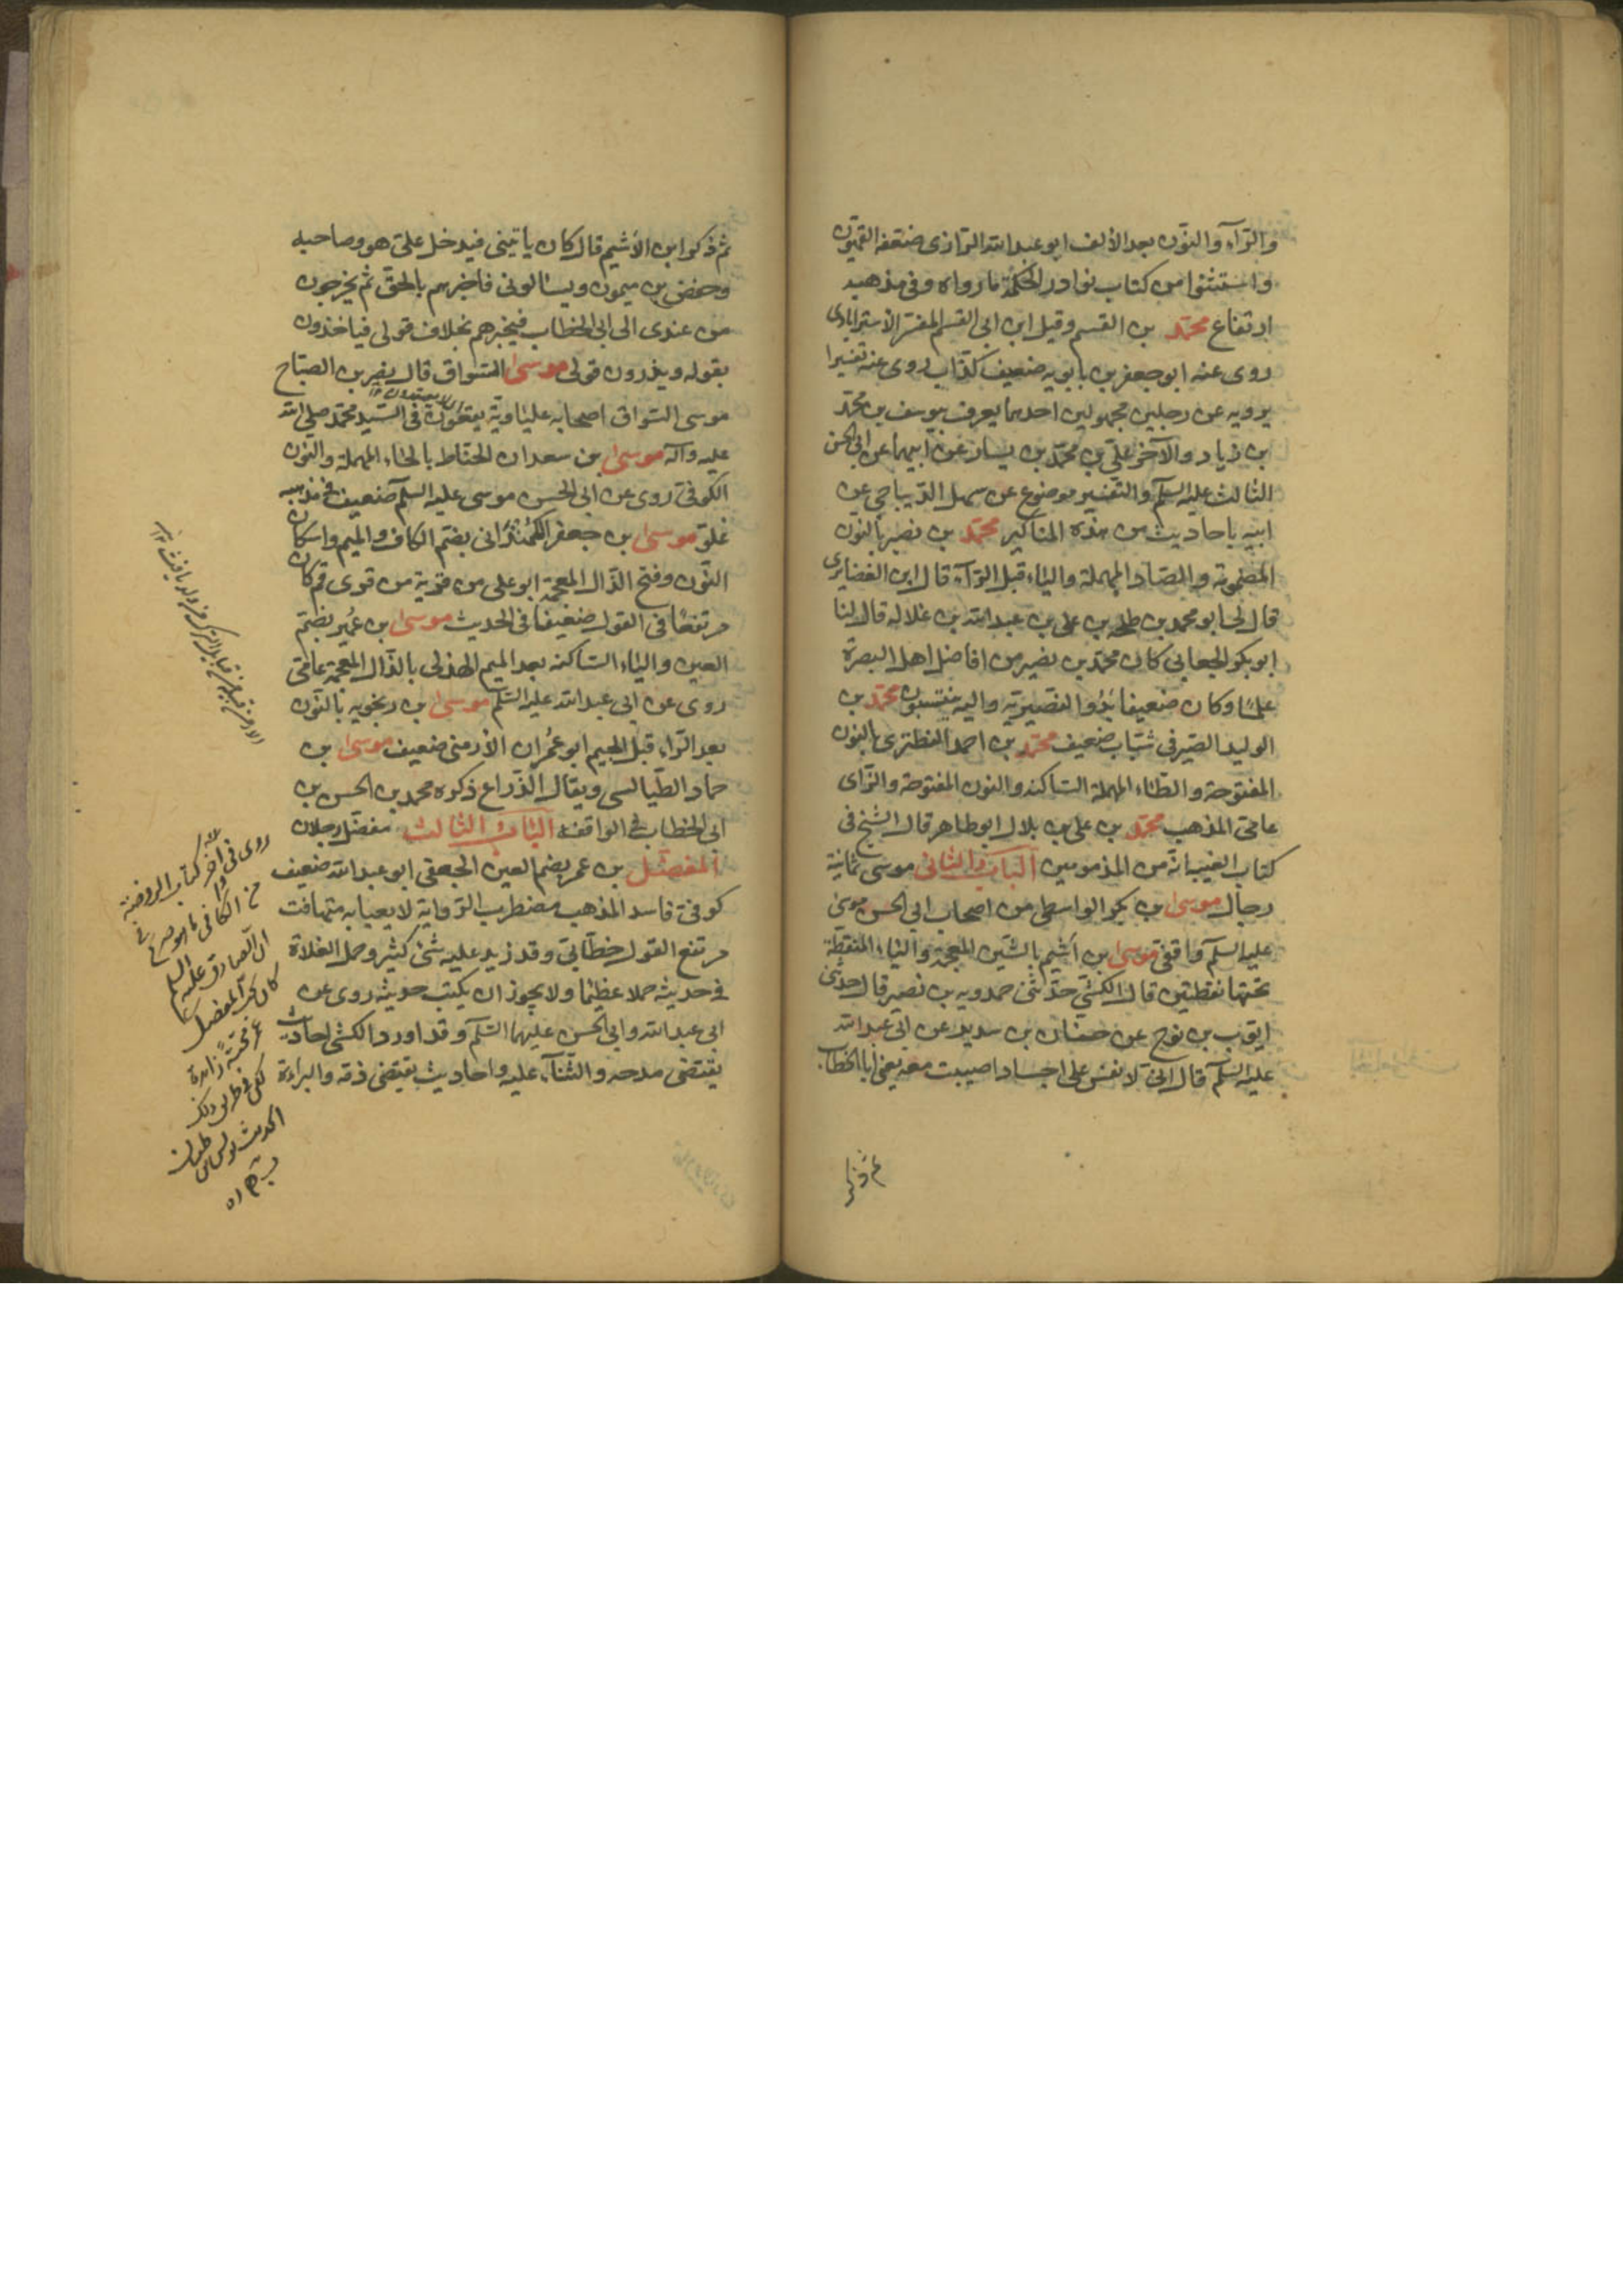 والرّاء والنّون بعد الألف ابو عبد الله الرّازى ضعّفه القمّيون
واستثنوا من كتاب نوادر الحكمة ما رواه وفى مذهبه
ارتفاع محمّد بن القسم وقيل ابن ابى القسم المفسّر الأسترابادى
روى عنه ابو جعفر بن بابويه ضعيف كذّاب روى عنه تفسيرا
يرويه عن رجلين مجهولين احدهما يعرف بيوسف بن محمّد
بن زياد والآخر علىّ بن محمّد بن يسار عن ابيهما عن ابى الحسن
الثالث عليه السلم والتّفسير موضوع عن سهل الدّيباجى عن
ابيه باحاديث من هذه المناكير محمّد بن نصير بالنّون
المضمومة والصّاد المهملة والياء قبل الرّاء قال ابن الغضايرى
قال لى ابو محمد بن طلحه بن على بن عبد الله بن غلاله قال لنا
ابو بكر الجعابى كان محمّد بن نصير من افاضل اهل البصرة
علمًا وكان ضعيفا بدو النصيريّة واليه ينتسبون محمّد بن
الوليد الصّيرفى شباب ضعيف محمّد بن احمد النطنزى بالنون
المفتوحة والطّاء المهملة السّاكنه والنون المفتوحة والزّاى
عامّى المذهب محمّد بن على بن بلال ابو طاهر قال الشيخ فى
كتاب الغيبه انّه من المذمومين الباب الثانى موسى ثمانية
رجال موسى بن بكر الواسطى من اصحاب ابى الحسن موسى
عليه السلم واقفى موسى بن أشيم بالشّين المعجمة والياء المنقطة
تحتها نقطتين قال الكشّى حدّثنى حمدويه بن نصير قال حدثنى
ايّوب بن نوح عن حنان بن سدير عن ابى عبد الله
عليه السلم قال انّى لانفس على اجساد اصيبت معه يعنى ابا الخطاب
ثم ذكر
ثم ذكر ابن الأشيم قال كان ياتينى فيدخل علىّ هو وصاحبه
وحفص بن ميمون ويسئالونى فاخبرهم بالحقّ ثم يخرجون
من عندى الى ابى الخطاب فيخبرهم بخلاف قولى فياخذون
بقوله ويذرون قولى موسى السّواق قال نصر بن الصبّاح
موسى السّواق اصحابه علياويّة يقعون فى السّيد محمّد صلى الله
عليه وآله موسى بن سعدان الحنّاط بالحاء المهملة والنّون
الكوفىّ روى عن ابى الحسن موسى عليه السلم ضعيف فى مذهبه
غلوّ موسى بن جعفر الكُمنْذانى بضمّ الكاف والميم واسكان
النّون وفتح الذّال المعجمة ابو على من قرية من قرى قم كان
مرتفعًا فى القول ضعيفا فى الحديث موسى بن عُمَير بضمّ
العين والياء السّاكنه بعد الميم الهذلى بالذّال المعجمة عامّى
روى عن ابى عبد الله عليه السّلم موسى بن رنجويه بالنّون
بعد الرّاء قبل الجيم ابو عُمران الأرمنى ضعيف موسى بن
حماد الطّيالسى ويقال الذّراع ذكره محمد بن الحسن بن
ابى الخطاب فى الواقفه الباب الثالث مفضّل رجلان
المفضّل بن عمر بضم العين الجعفى ابو عبد الله ضعيف
كوفىّ فاسد المذهب مضطرب الرّواية لا يعبا به متهافت
مرتفع القول خطّابىّ وقد زيد عليه شئ كثير وحمل الغلاة
فى حديثه حملا عظيما ولا يجوز ان يكتب حديثه روى عن
ابى عبد الله وابى الحسن عليهما السّلم وقد اورد الكشى احاديث
يقتضى مدحه والثّناء عليه واحاديث يقتضى ذمّه والبراءة
روى فى آخر كتاب الروضة
من الكافى
ان الصادق عليه السلم
كان
المفضل